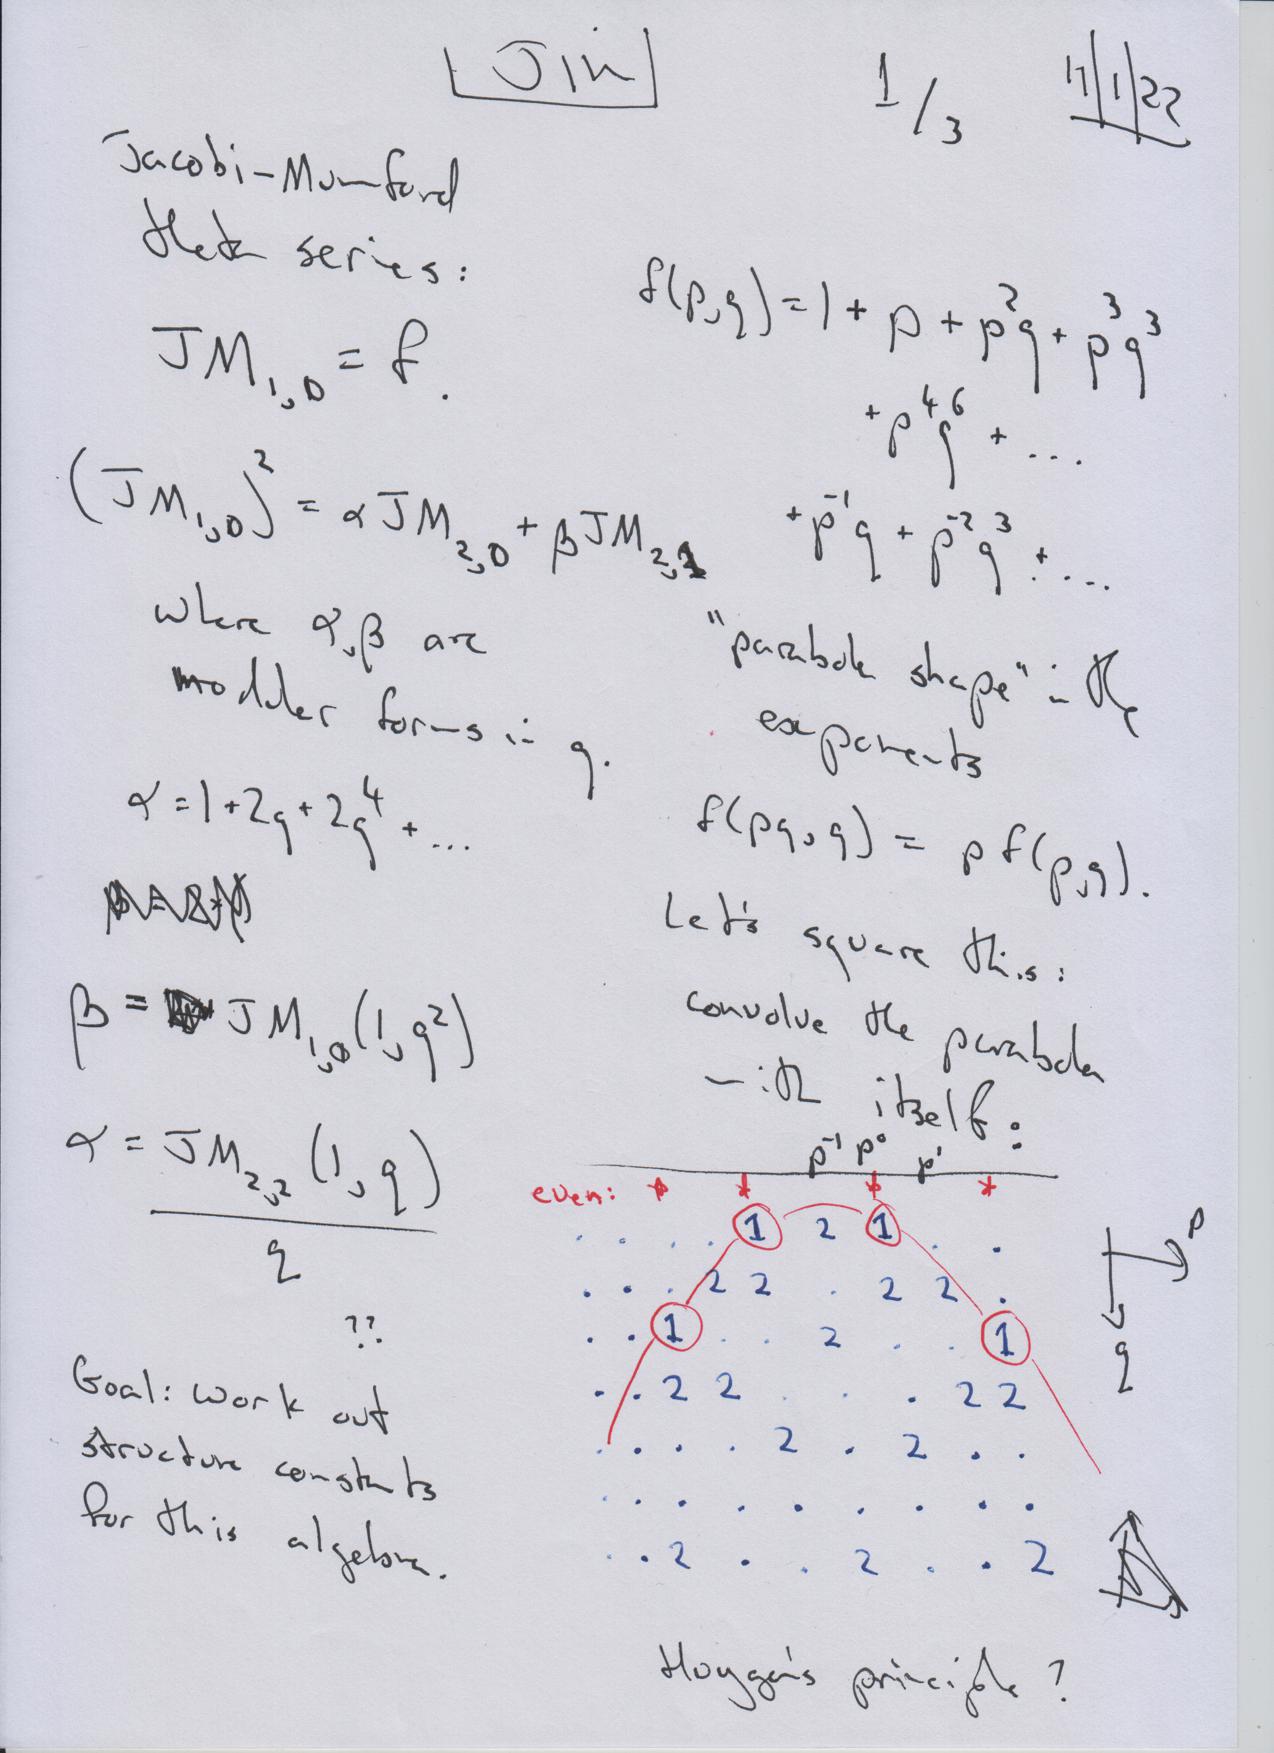 Jim
1/3
17/1/22
Jacobi-Mumford
theta series:
JM_{1,0} = f.
(JM_{1,0})^2 = α JM_{2,0} + β JM_{2,1}
where α, β are
modular forms in q.
α = 1 + 2q + 2q^4 + ...
β = JM_{1,0}(1, q^2)
α = JM_{2,2}(1, q)
q
??
Goal: work out
structure constants
for this algebra.
f(p,q) = 1 + p + p^2 q + p^3 q^3
+ p^4 q^6 + ...
+ p^{-1} q + p^{-2} q^3 + ...
"parabola shape" in the
exponents
f(pq, q) = p f(p,q).
Let's square this:
convolve the parabola
with itself:
p^{-1} p^0 p^1
even: * * * *
. . . . 1 2 1 . .
. . 2 2 . 2 2 .
. . 1 . . 2 . . 1
. . 2 2 . . . 2 2
. . . . 2 . 2 . .
. . . . . . . .
. . 2 . . 2 . . 2
p
q
Huygen's principle?